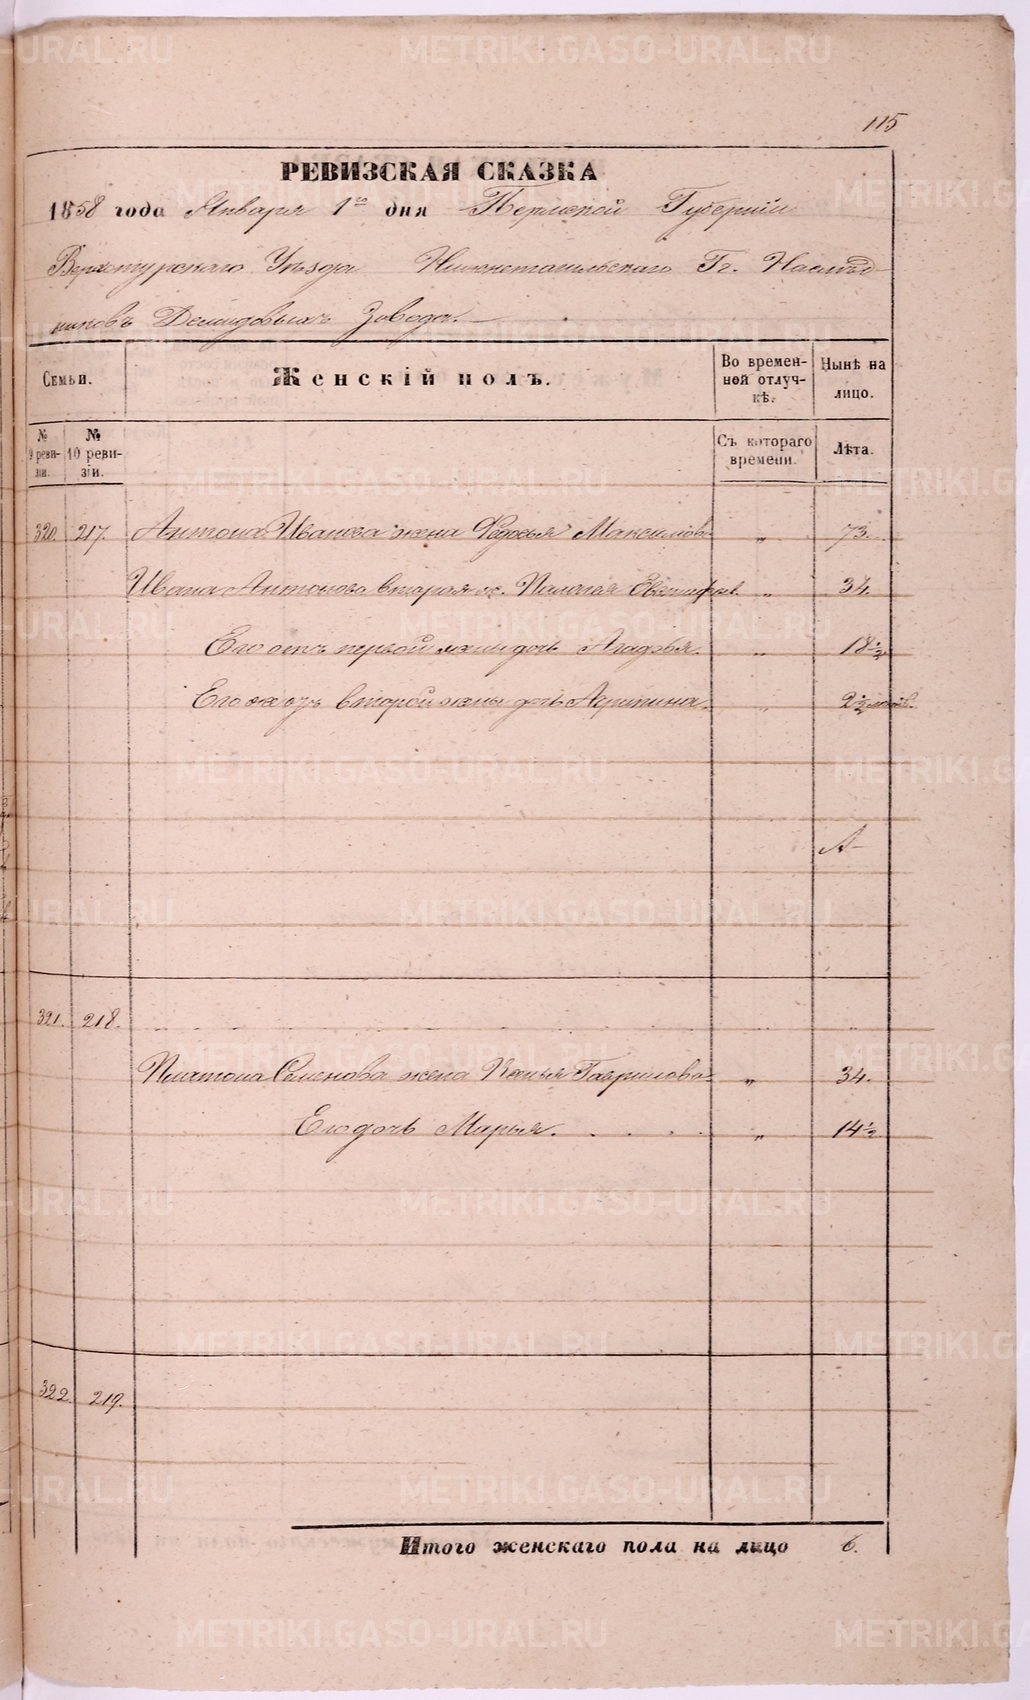 115
РЕВИЗСКАЯ СКАЗКА
1858 года Января 1го дня Пермской Губернии
Верхотурскаго Уѣзда Нижнетагильскаго Гг. Наслѣд
никовъ Демидовыхъ Завода.
Семьи.
Женскій полъ.
Во времен-
ной отлуч-
кѣ.
Нынѣ на
лицо.
№
9 реви-
зіи.
№
10 реви-
зіи.
Съ котораго
времени.
Лѣта.
320. 217. Антона Иванова жена Федосья Максимова „ 73.
Ивана Антонова вторая ж. Палагея Евстифѣев. „ 34.
Его отъ первой жены дочь Агафья. „ 18 1/2
Его же отъ второй жены дочь Агрипина. „ 2 1/2
А
321. 218.
Платона Семенова жена Ксенья Гаврилова „ 34.
Его дочь Марья. „ 14 1/2
322. 219.
Итого женскаго пола на лицо 6.
METRIKI.GASO-URAL.RU